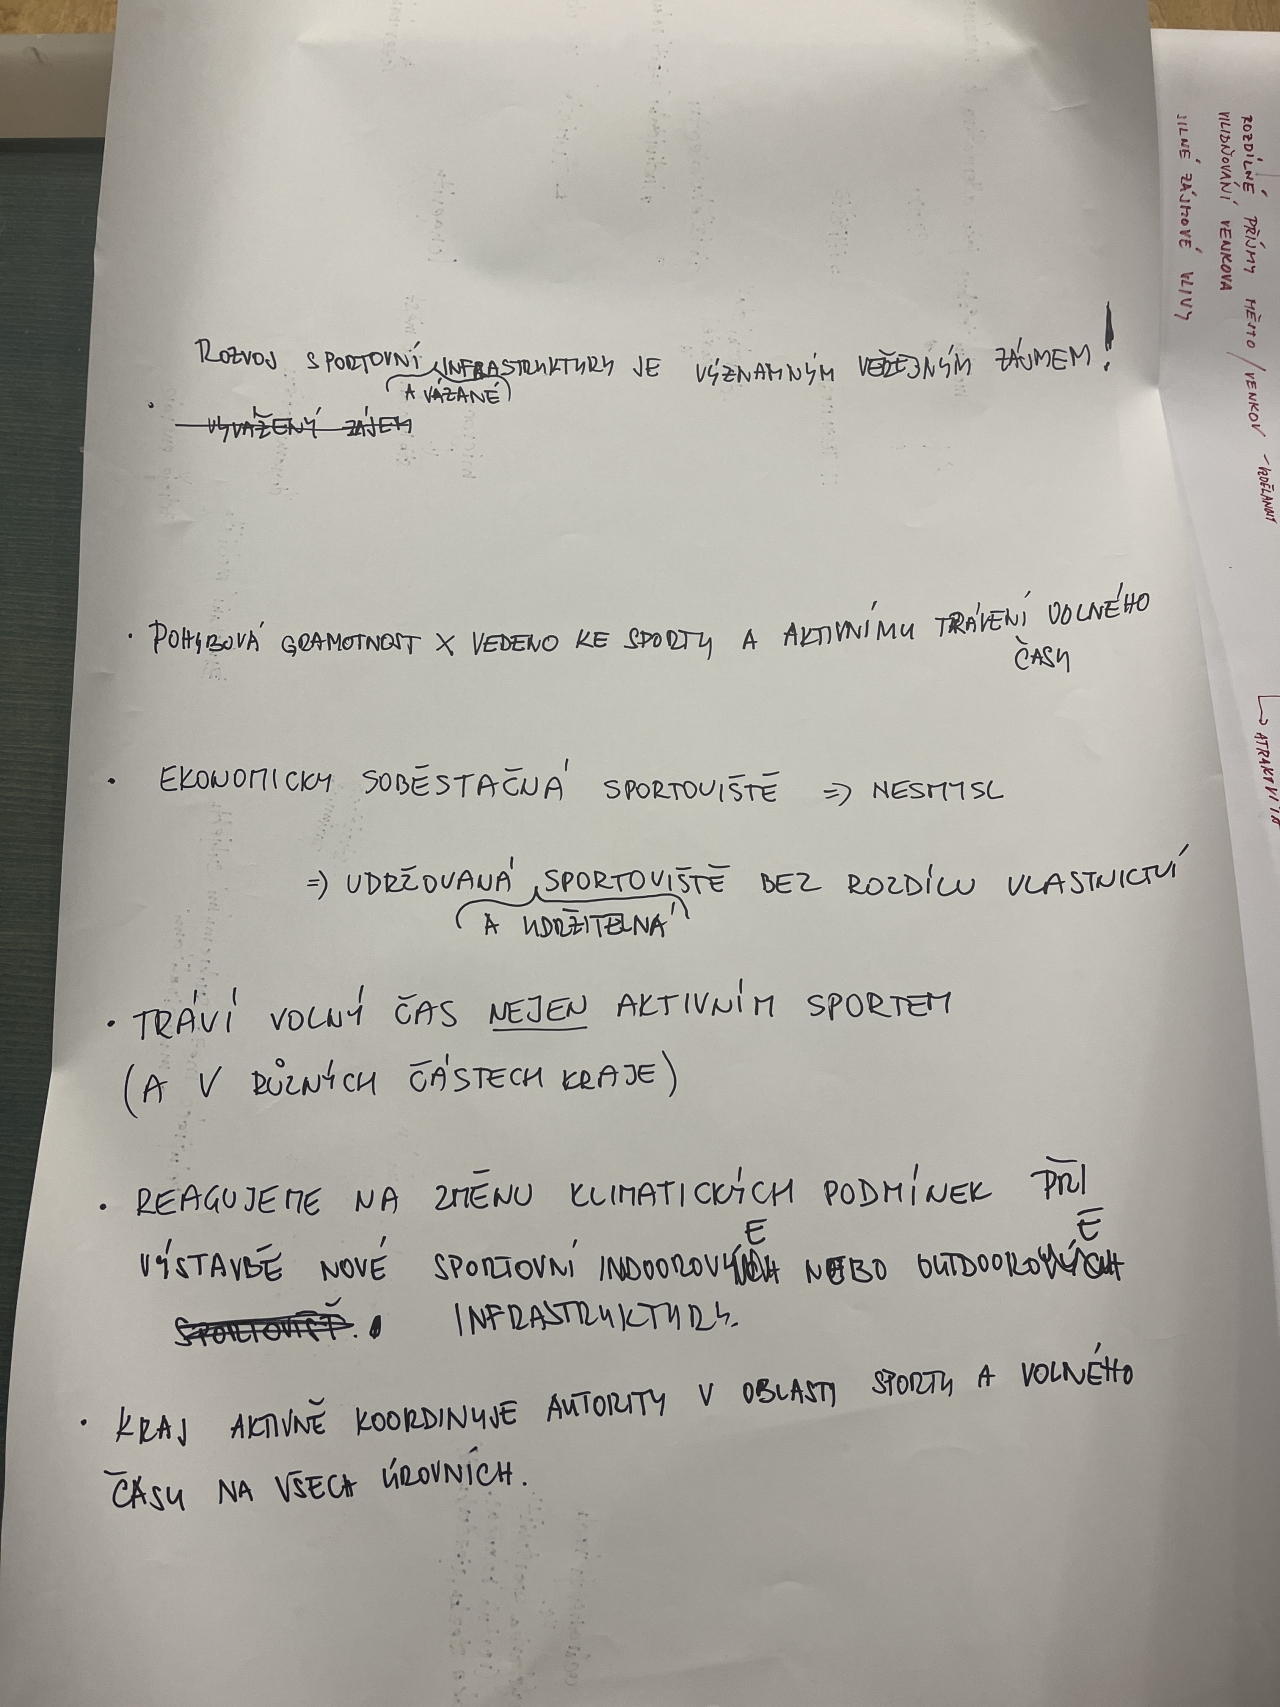 ROZVOJ SPORTOVNÍ INFRASTRUKTURY JE VÝZNAMNÝM VEŘEJNÝM ZÁJMEM!
(A VÁZANÉ)
• VYVÁŽENÝ ZÁJEM
• POHYBOVÁ GRAMOTNOST X VEDENO KE SPORTU A AKTIVNÍMU TRÁVENÍ VOLNÉHO
ČASU
• EKONOMICKY SOBĚSTAČNÁ SPORTOVIŠTĚ => NESMYSL
=> UDRŽOVANÁ SPORTOVIŠTĚ BEZ ROZDÍLU VLASTNICTVÍ
(A UDRŽITELNÁ)
• TRÁVÍ VOLNÝ ČAS NEJEN AKTIVNÍM SPORTEM
(A V RŮZNÝCH ČÁSTECH KRAJE)
• REAGUJEME NA ZMĚNU KLIMATICKÝCH PODMÍNEK PŘI
VÝSTAVBĚ NOVÉ SPORTOVNÍ INDOOROVÉ NEBO OUTDOOROVÉ
SPORTOVIŠŤ. INFRASTRUKTURY.
• KRAJ AKTIVNĚ KOORDINUJE AUTORITY V OBLASTI SPORTU A VOLNÉHO
ČASU NA VŠECH ÚROVNÍCH.
ROZDÍLNÉ PŘÍJMY MĚSTO / VENKOV
VILIDŇOVÁNÍ VENKOVA
SILNÉ ZÁJMOVÉ VLIVY